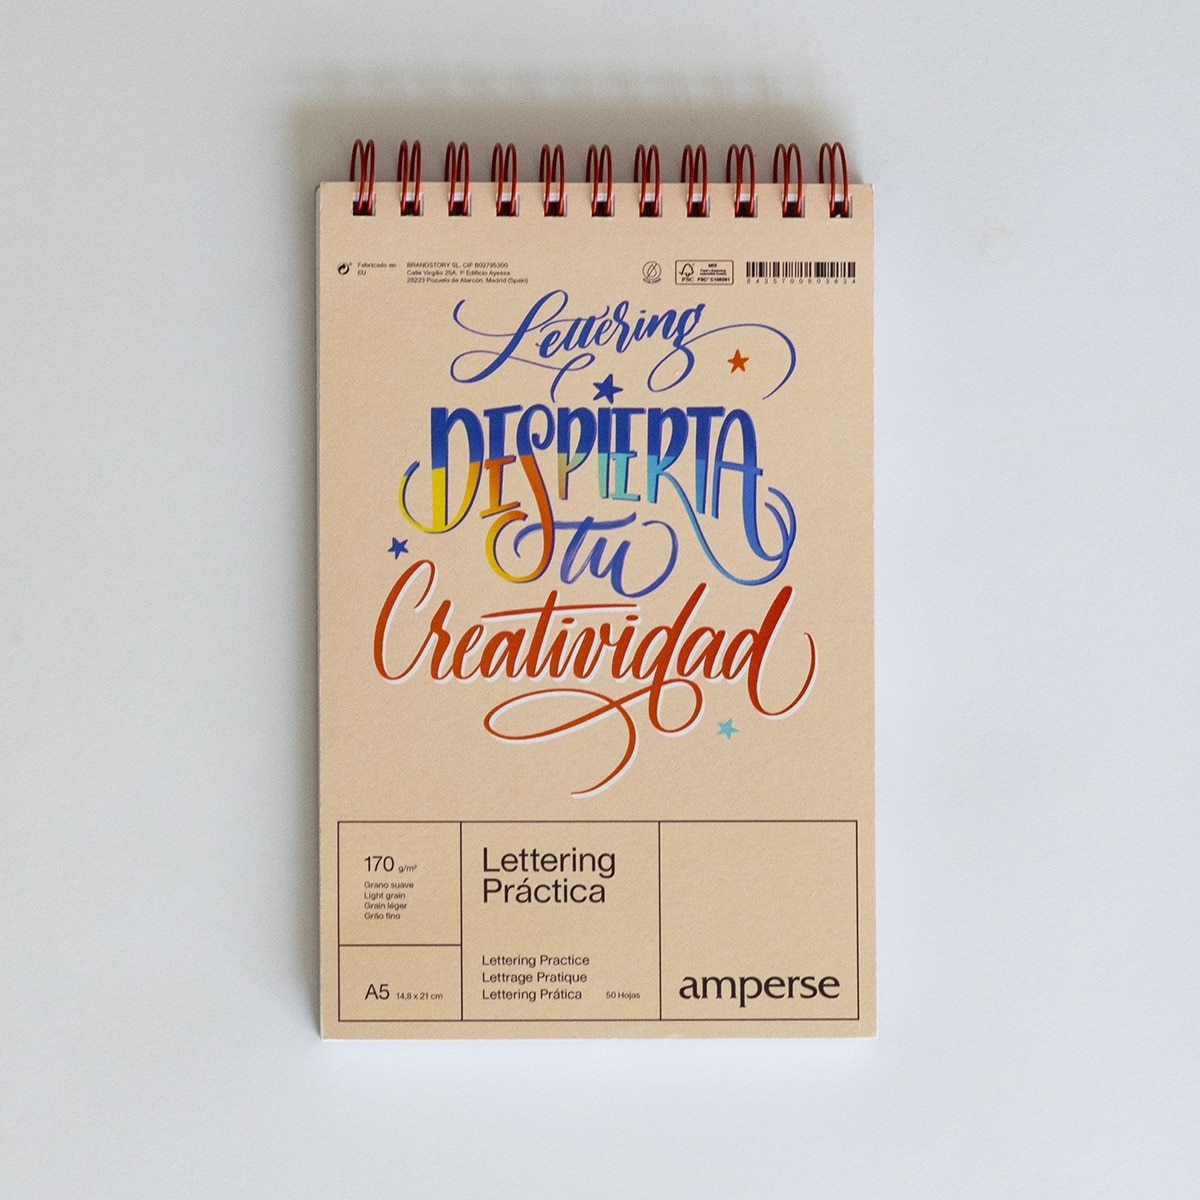 Fabricado en
EU
BRANDSTORY SL. CIF B02795300
Calle Virgilio 25A, 1º Edificio Ayessa
28223 Pozuelo de Alarcón, Madrid (Spain)
FSC
MIX
FSC® C136261
8435700903634
Lettering
DESPIERTA
tu
Creatividad
170 g/m²
Grano suave
Light grain
Grain léger
Grão fino
A5 14,8 x 21 cm
Lettering
Práctica
Lettering Practice
Lettrage Pratique
Lettering Prática
50 Hojas
amperse